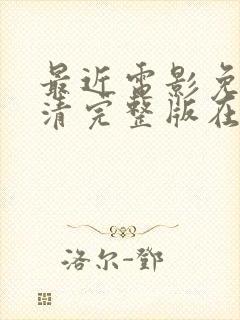 最近电影免
清完整版在
洛尔-邓